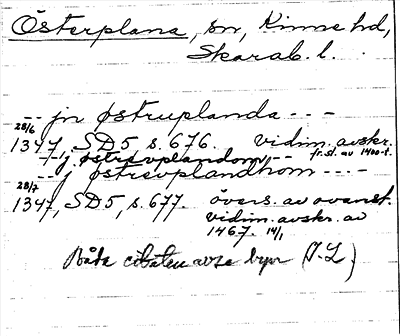 Österplana, sn, Kinne hd,
Skarab. l.
-- jn østruplanda ---
28/6
1347. SD5, s. 676. vidim. avskr.
fr. sl. av 1400-t.
--j østrevplandom, --
-- j østrevplandhom ----
28/7
1347, SD5, s. 677. övers. av ovanst.
vidim. avskr. av
1467. 14/1
Båda citaten avse byn (I.L.)